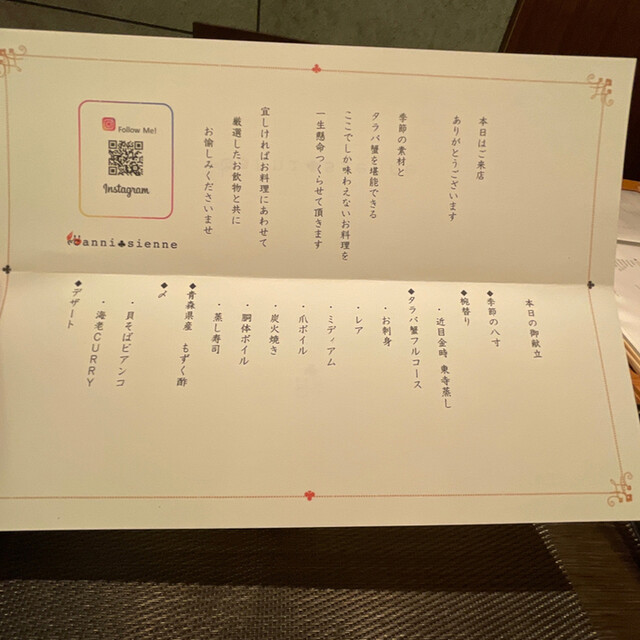 本日はご来店
ありがとうございます
季節の素材と
タラバ蟹を堪能できる
ここでしか味わえないお料理を
一生懸命つくらせて頂きます
宜しければお料理にあわせて
厳選したお飲物と共に
お愉しみくださいませ
Follow Me!
Instagram
anni♣sienne
本日の御献立
◆季節の八寸
◆椀替り
・近目金時 東寺蒸し
◆タラバ蟹フルコース
・お刺身
・レア
・ミディアム
・爪ボイル
・炭火焼き
・胴体ボイル
・蒸し寿司
◆青森県産 もずく酢
◆〆
・貝そばビアンコ
・海老CURRY
◆デザート